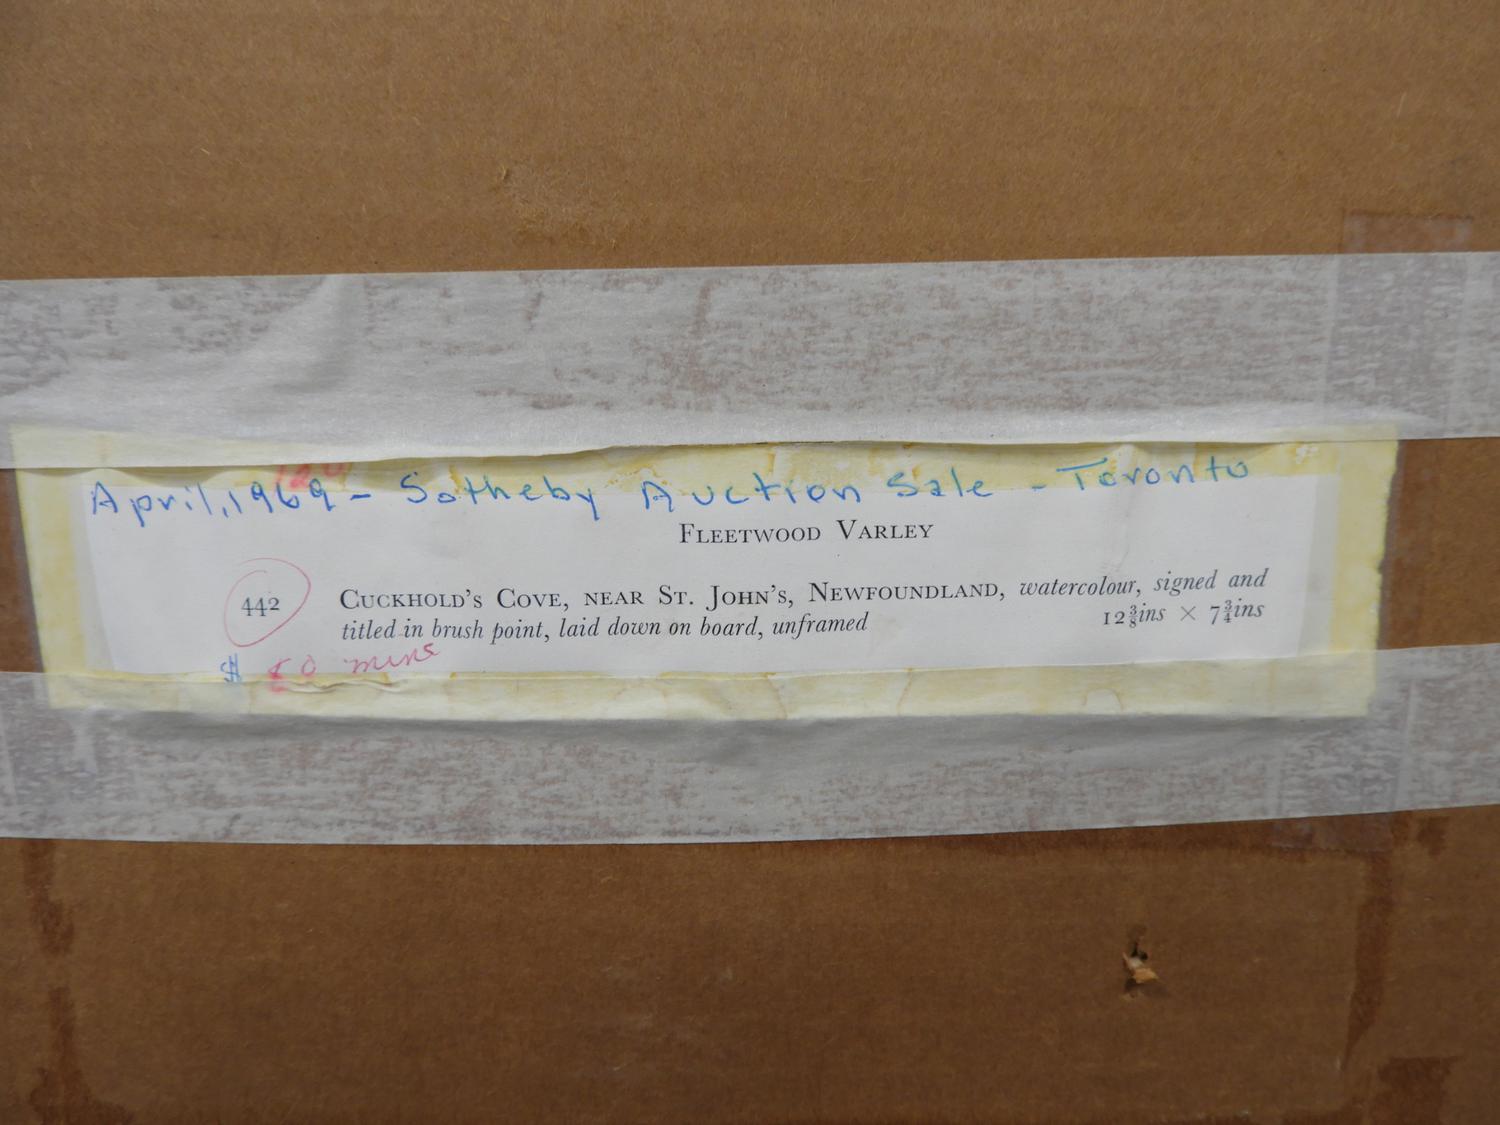 April, 1969 - Sotheby Auction Sale - Toronto
FLEETWOOD VARLEY
442 CUCKHOLD'S COVE, NEAR ST. JOHN'S, NEWFOUNDLAND, watercolour, signed and
titled in brush point, laid down on board, unframed 12⅜ins × 7¾ins
$